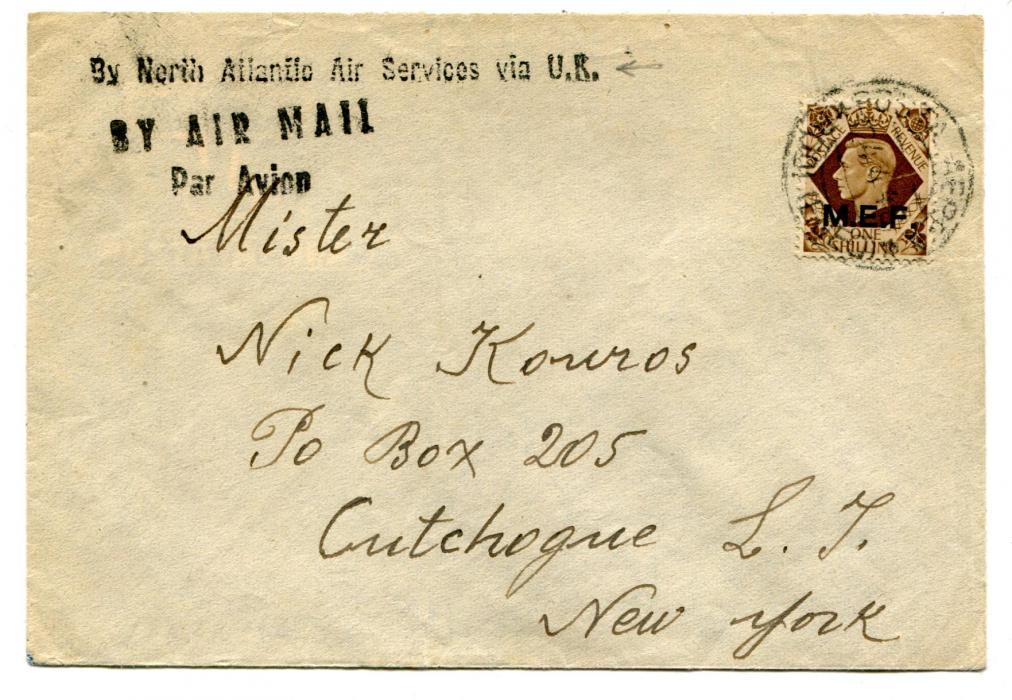 By North Atlantic Air Services via U.K.
BY AIR MAIL
Par Avion
POSTAGE REVENUE
M.E.F.
ONE
SHILLING
Mister
Nick Kouros
Po Box 205
Cutchogue L. I.
New York